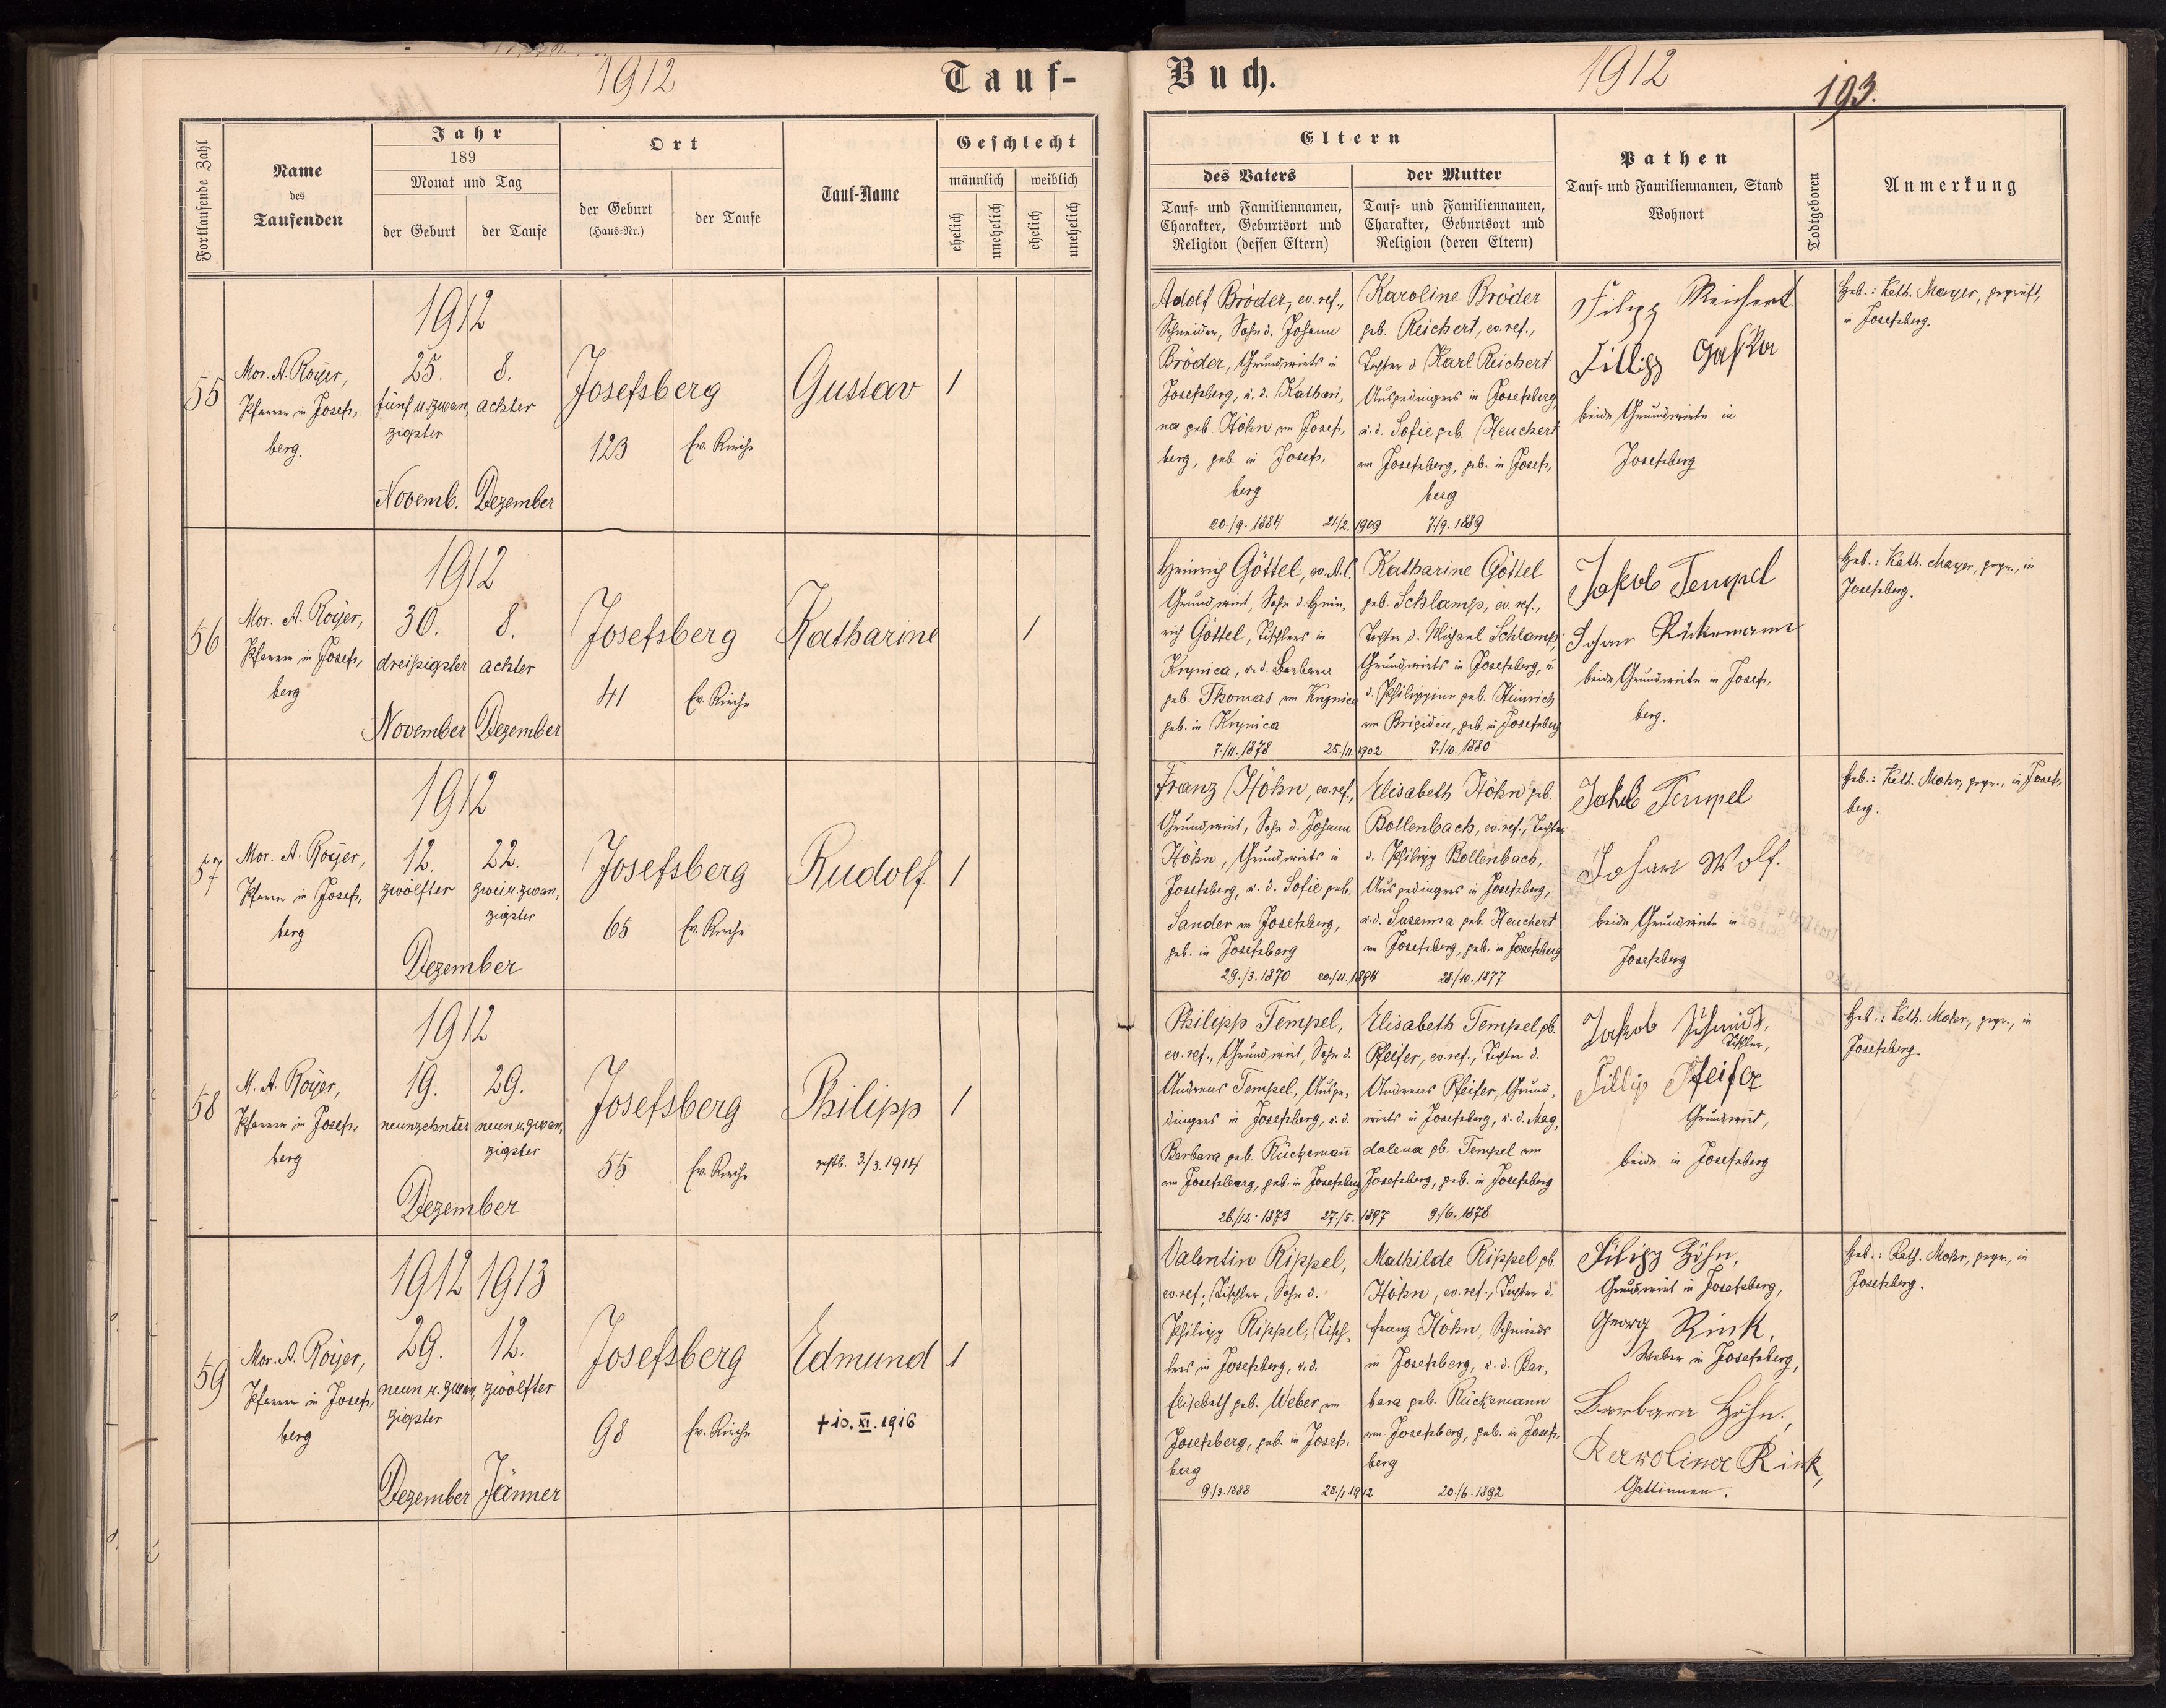 1912
Tauf-
Buch.
1912
193.
Fortlaufende Zahl
Name
des
Taufenden
Jahr
189
Monat und Tag
der Geburt
der Taufe
Ort
der Geburt
(Haus-Nr.)
der Taufe
Tauf-Name
Geschlecht
männlich
weiblich
ehelich
unehelich
ehelich
unehelich
Eltern
des Vaters
Tauf- und Familiennamen,
Charakter, Geburtsort und
Religion (dessen Eltern)
der Mutter
Tauf- und Familiennamen,
Charakter, Geburtsort und
Religion (deren Eltern)
Pathen
Tauf- und Familiennamen, Stand
Wohnort
Todtgeboren
Anmerkung
55
Mor. A. Royer,
Pfarrer in Josefs-
berg.
1912
25.
fünf u. zwan-
zigster
Novemb.
8.
achter
Dezember
Josefsberg
123
Ev. Kirche
Gustav
1
Adolf Bröder, ev. ref.,
Schneider, Sohn d. Johann
Bröder, Grundwirts in
Josefsberg, u. d. Kathari-
na geb. Höhn von Josefs-
berg, geb. in Josefs-
berg
20./9. 1884
21/2. 1909
Karoline Bröder
geb. Reichert, ev. ref.,
Tochter d. Karl Reichert
Ausgedingers in Josefsberg
u. d. Sofie geb. Heuchert
von Josefsberg, geb. in Josefs-
berg
7/9. 1889
Filipp Reichert
beide Grundwirte in
Josefsberg
Heb.: Kath. Mayer, geprüft,
in Josefsberg.
56
Mor. A. Royer,
Pfarrer in Josefs-
berg
1912
30.
dreißigster
November
8.
achter
Dezember
Josefsberg
41
Ev. Kirche
Katharine
1
Heinrich Göttel, ev. A. C.
Grundwirt, Sohn d. Hein-
rich Göttel, Tischlers in
Krynica, u. d. Barbara
geb. Thomas von Krynica
geb. in Krynica
7./11. 1878
25./11. 1902
Katharine Göttel
geb. Schlamp, ev. ref.,
Tochter d. Michael Schlamp,
Grundwirts in Josefsberg, u.
d. Philippine geb. Heinrich
von Brigidau, geb. in Josefsberg
7./10. 1880
Jakob Tempel
Johan Rückemann
beide Grundwirte in Josefs-
berg.
Heb.: Kath. Mayer, gepr., in
Josefsberg.
57
Mor. A. Royer,
Pfarrer in Josefs-
berg
1912
12.
zwölfter
22.
zwei u. zwan-
zigster
Dezember
Josefsberg
65
Ev. Kirche
Rudolf
1
Franz Höhn, ev. ref.,
Grundwirt, Sohn d. Johann
Höhn, Grundwirts in
Josefsberg, u. d. Sofie geb.
Sander von Josefsberg,
geb. in Josefsberg
29./3. 1870
20./11. 1894
Elisabeth Höhn geb.
Bollenbach, ev. ref., Tochter
d. Philipp Bollenbach,
Ausgedingers in Josefsberg,
u. d. Susanna geb. Heuchert
von Josefsberg, geb. in Josefsberg
28./10. 1877
Jakob Tempel
Johan Wolf.
beide Grundwirte in
Josefsberg
Heb.: Kath. Mohr, gepr., in Josefs-
berg.
58
M. A. Royer,
Pfarrer in Josefs-
berg
1912
19.
neunzehnter
29.
neun u. zwan-
zigster
Dezember
Josefsberg
55
Ev. Kirche
Philipp
gestb. 3./3. 1914
1
Philipp Tempel,
ev. ref., Grundwirt, Sohn d.
Andreas Tempel, Ausge-
dingers in Josefsberg, u. d.
Barbara geb. Rückemann̄
von Josefsberg, geb. in Josefsberg
26./12. 1873
27./5. 1897
Elisabeth Tempel gb.
Pfeifer, ev. ref., Tochter d.
Andreas Pfeifer, Grund-
wirts in Josefsberg, u. d. Mag-
dalena gb. Tempel von
Josefsberg, geb. in Josefsberg
9./6. 1878
Jakob Schmidt,
Tischler,
Fillip Pfeifer
Grundwirt,
beide in Josefsberg
Heb.: Kath. Mohr, gepr., in
Josefsberg.
59
Mor. A. Royer,
Pfarrer in Josefs-
berg
1912
29.
neun u. zwan-
zigster
Dezember
1913
12.
zwölfter
Jänner
Josefsberg
98
Ev. Kirche
Edmund
† 10. XI. 1916
1
Valentin Rippel,
ev. ref., Tischler, Sohn d.
Philipp Rippel, Tisch-
lers in Josefsberg, u. d.
Elisabeth geb. Weber von
Josefsberg, geb. in Josefs-
berg
9./3. 1888
28./1. 1912
Mathilde Rippel gb.
Höhn, ev. ref., Tochter d.
Franz Höhn, Schmieds
in Josefsberg, u. d. Bar-
bara geb. Rückemann
von Josefsberg, geb. in Josefs-
berg
20./6. 1892
Filipp Höhn,
Grundwirt in Josefsberg,
Georg Rink,
Weber in Josefsberg,
Barbara Höhn,
Karolina Rink,
Gattinnen.
Heb.: Kath. Mohr, gepr., in
Josefsberg.